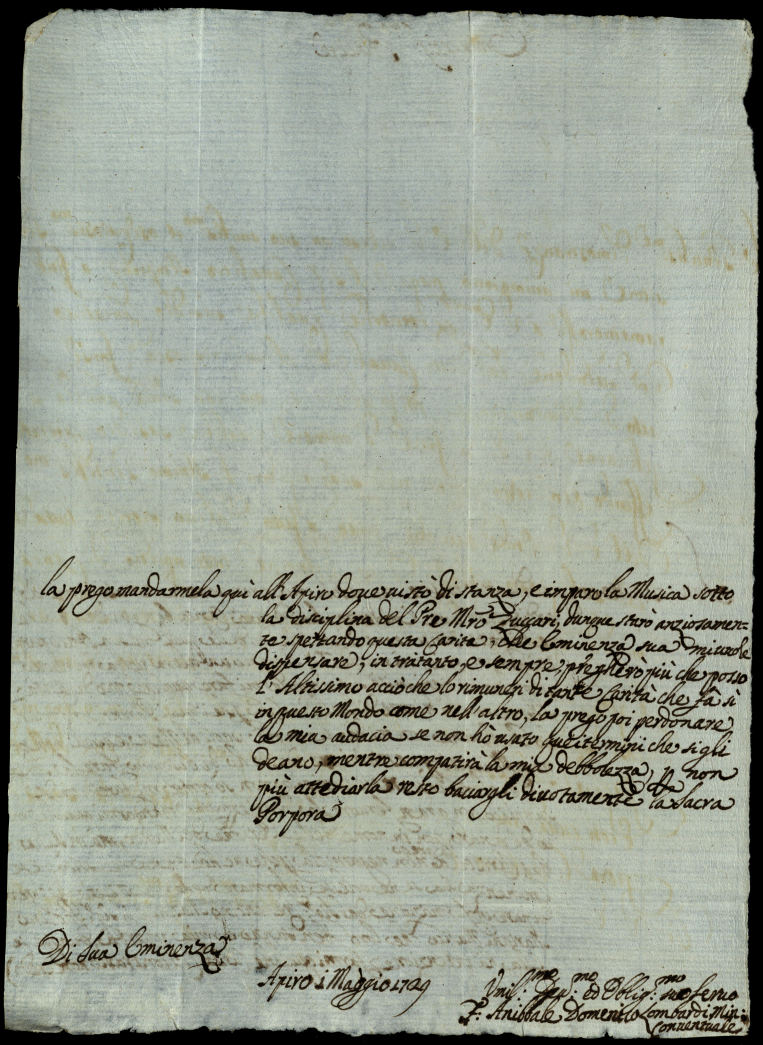 la prego mandarmela quì all'Apiro dove vi stò di stanza, e imparo la Musica sotto
la disciplina del Pre Mro Zuccari, dunque starò anziosamen-
te spettando questa Carità, che Eminenza sua mi vuole
dispensare, in tratanto, e sempre pregherò più che posso
l'Altissimo acciò che lo rimuneri di tante Carità che fà sì
in questo Mondo come nell'altro, la prego poi perdonare
la mia audacia se non hò usato quei termini che si gli
deano, mentre compatirà la mia debbolezza, p non
più attediarla resto baciargli divotamente la Sacra
Porpora
Di Sua Eminenza
Apiro i Maggio 1729
Umil:mo Dev:mo ed Obblig:mo suo servo
F: Anibbale Domenico Lombardi Min:
Conventuale